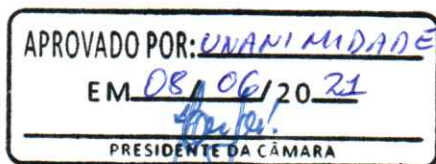 APROVADO POR: UNANIMIDADE
EM 08 / 06 / 20 21
PRESIDENTE DA CÂMARA